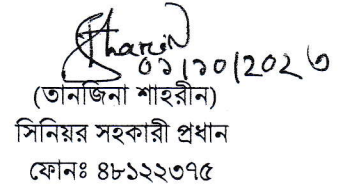 ০১/১০/২০২৩
(তানজিনা শাহরীন)
সিনিয়র সহকারী প্রধান
ফোনঃ ৪৮১২২৩৭৫